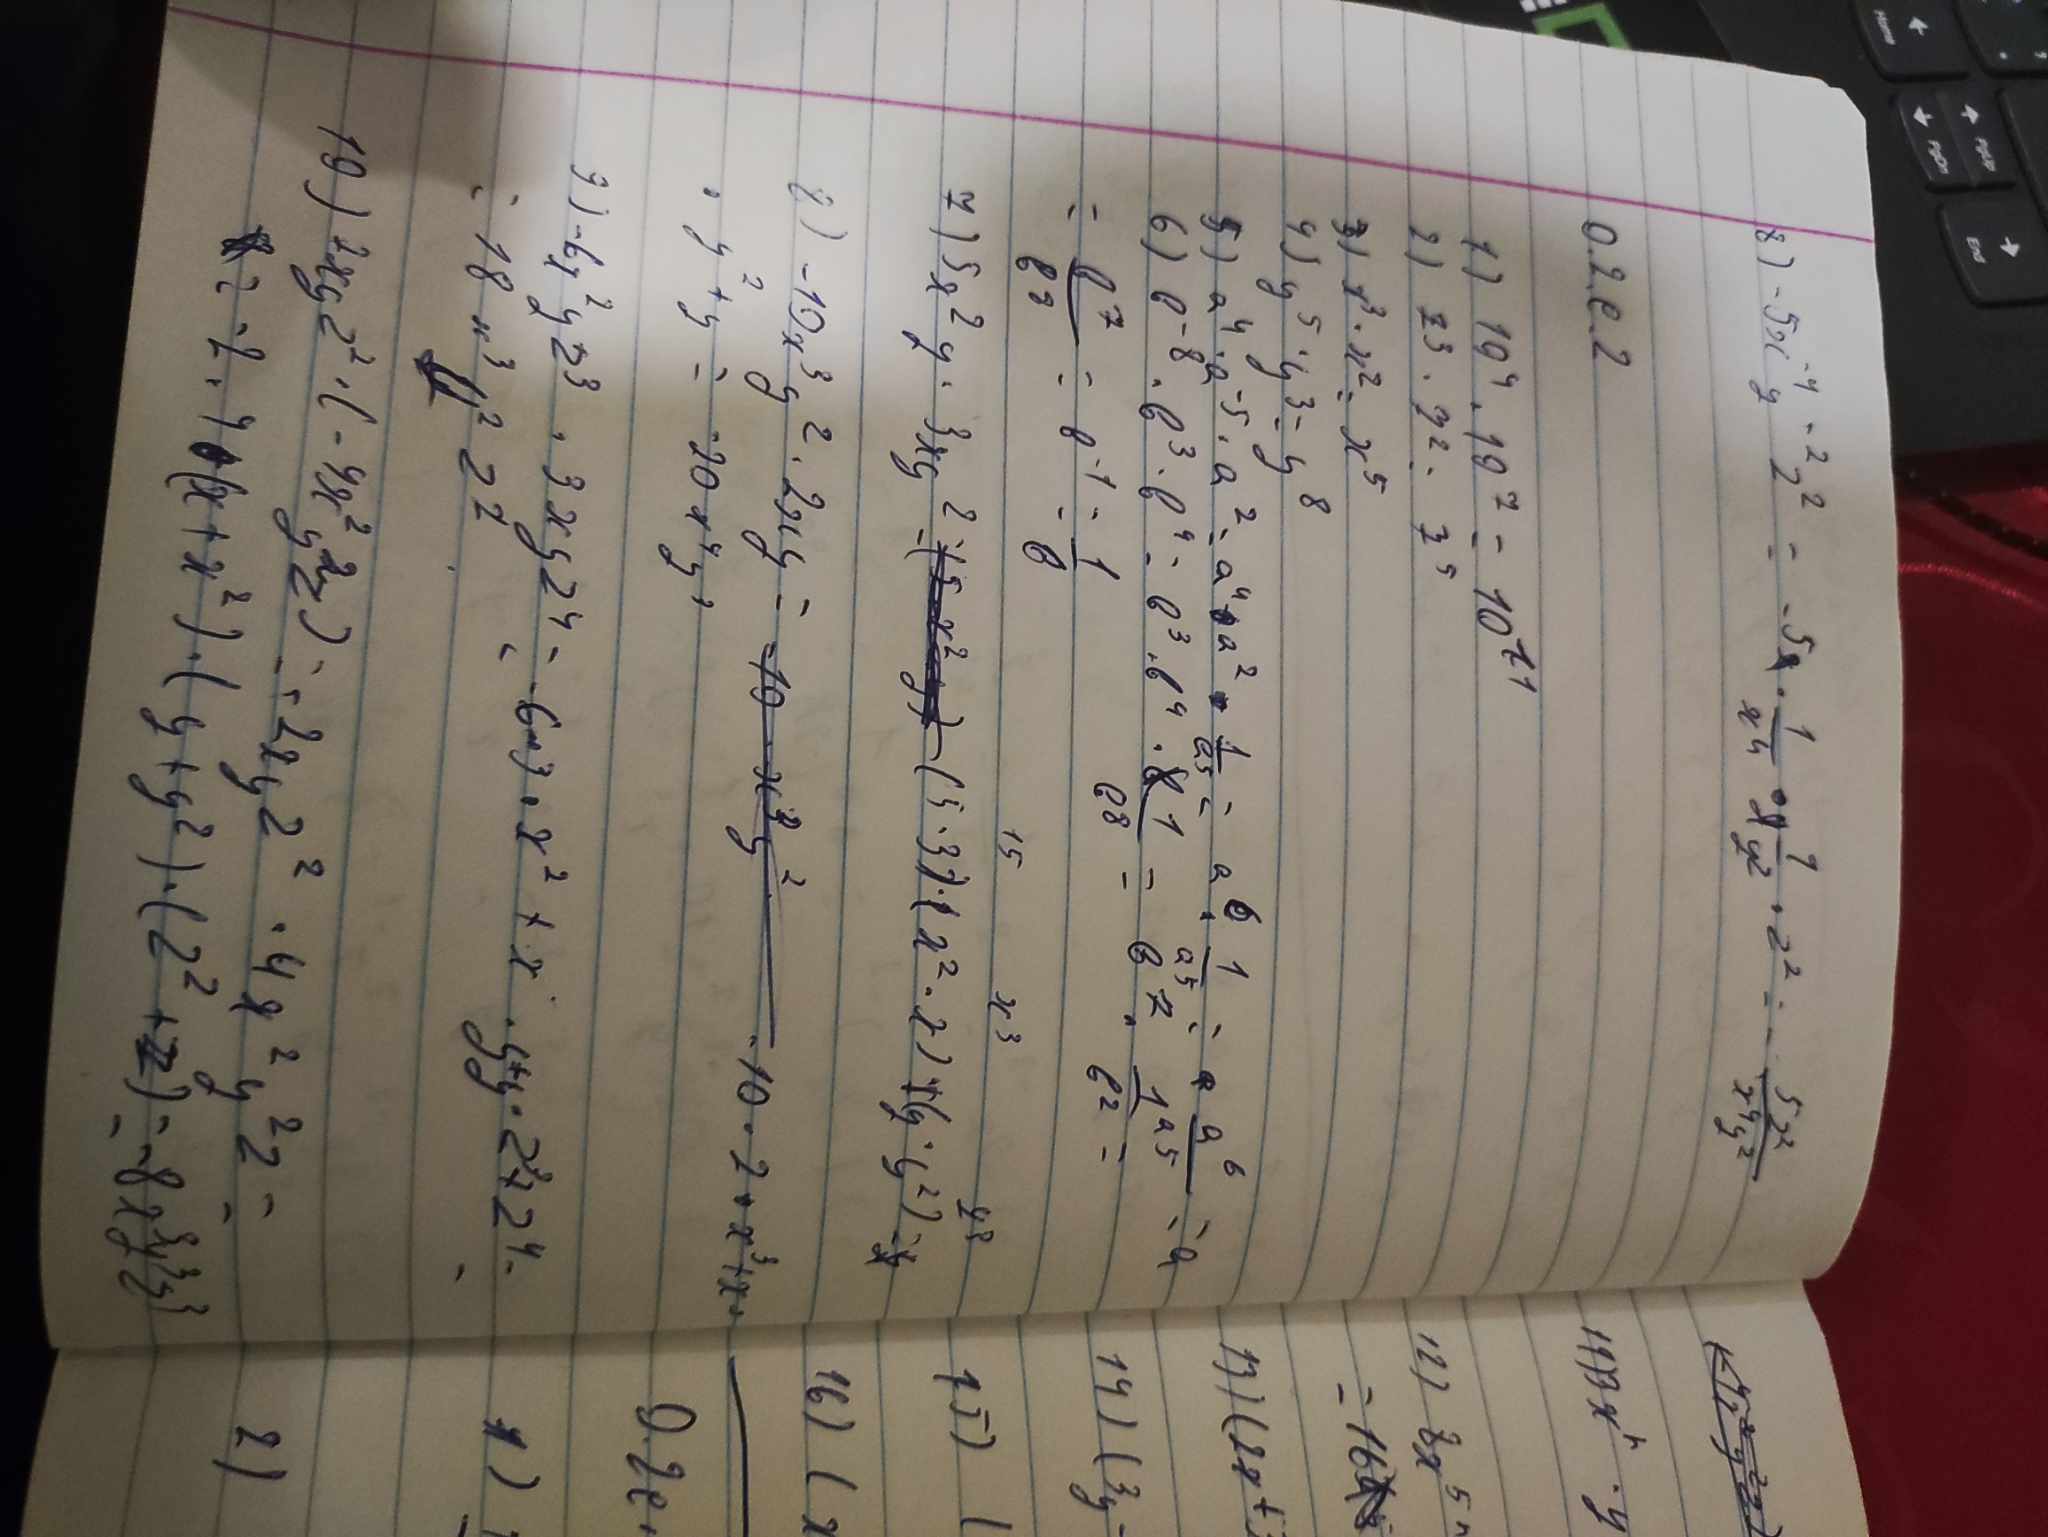 8) -5x⁻⁴ y⁻² z² = -5 · 1/x⁴ · 1/y² · z² = - 5z²/x⁴y²
0.2.e.2
1) 10⁴ · 10⁷ = 10¹¹
2) z³ · z² = z⁵
3) x³ · x² = x⁵
4) y⁵ · y³ = y⁸
5) a⁴ · a⁻⁵ · a² = a⁴ · a² · 1/a⁵ = a⁶ · 1/a⁵ = a⁶/a⁵ = a
6) b⁻⁸ · b³ · b⁴ = b³ · b⁴ · 1/b⁸ = b⁷ ·
= b⁷/b⁸ = b⁻¹ = 1/b
15 x³ y³
7) 5x²y · 3xy² = (5 · 3) · (x² · x) · (y · y²)
8) -10x³y² · 2xy = -10 · 2 · x³⁺ˣ
· y²+y = -20x⁴y³
9) -6x²yz³ · 3xyz⁴ = -6 · 3 · x²+x · y+y · z³+z⁴ =
= 18x³y²z⁷
10) 2xyz² · (-4x²y²z) = -2xyz² · 4x²y²z =
= -2 · 4(x+x²) · (y+y²) · (z²+z) = -8x³y³z³
11) 3x⁴ · y
12) 8x⁵
= 16
13) (2x+
14) (3y-
15) (
16) (x
0.2e.
1)
2)